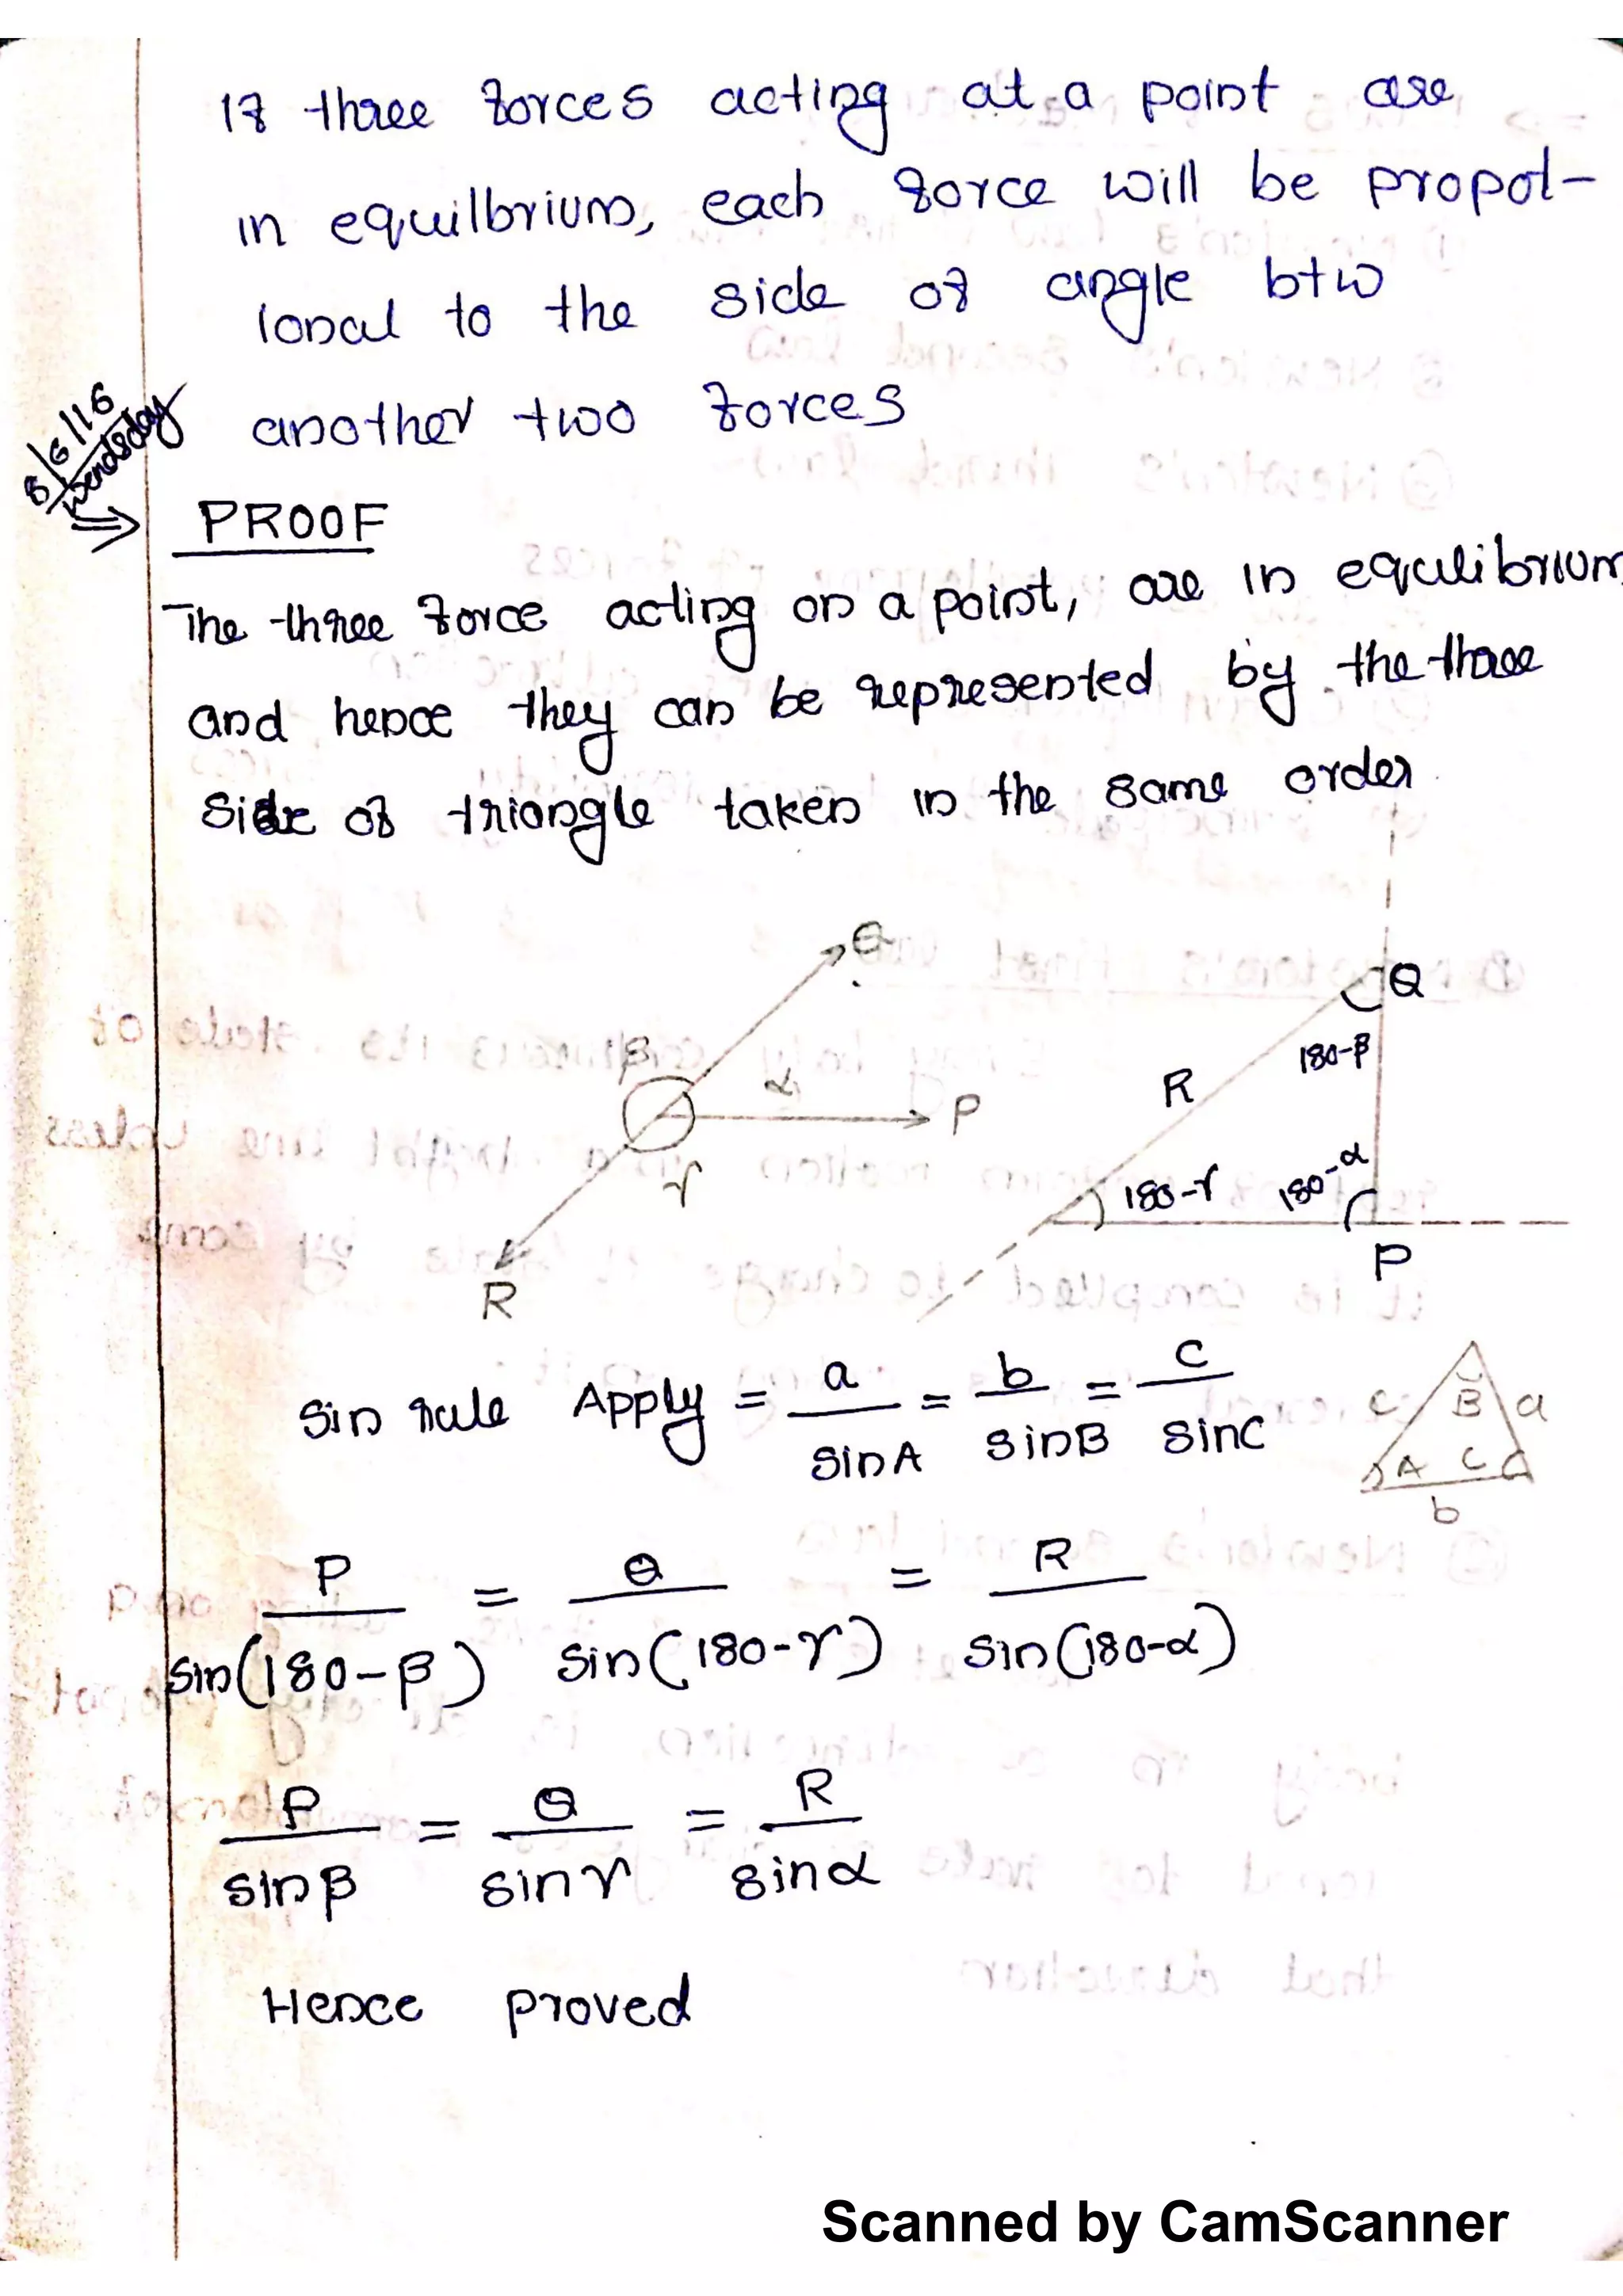 If three forces acting at a point are
in equilbrium, each force will be propot-
ional to the side of angle btw
another two forces
8/6/16
Wendsday
⇒ PROOF
The three force acting on a point, are in equilibrium
and hence they can be represented by the three
side of triangle taken in the same order
Q
β
α
P
γ
R
Q
180-β
R
180-γ
180-α
P
Sin rule Apply = a/sinA = b/sinB = c/sinC
c B a
A C
b
P/sin(180-β) = Q/sin(180-γ) = R/sin(180-α)
P/sinβ = Q/sinγ = R/sinα
Hence proved
Scanned by CamScanner